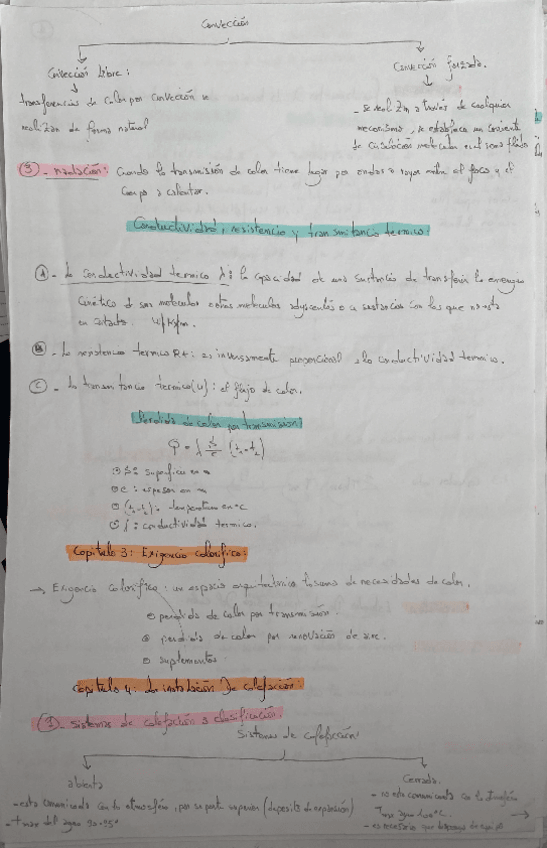 Convección
Convección libre:
Convección forzada.
transferencias de calor por convección se
realizan de forma natural
- se realizan a través de cualquier
mecanismo, se establece una corriente
de circulación molecular en el seno fluido
③ - radiación: Cuando la transmisión de calor tiene lugar por ondas o rayos entre el foco y el
cuerpo a calentar.
Conductividad, resistencia y transmitancia termica:
Ⓐ - la conductividad termica λ: la capacidad de una sustancia de transferir la energía
cinética de sus moleculas a otras moleculas adyacentes o a sustancias con las que no está
en contacto.
Ⓑ - la resistencia termica Rt: es inversamente proporcional a la conductividad termica.
Ⓒ - la transmitancia termica (U): el flujo de calor.
Perdida de calor por transmisión:
Q = λ S/e (t₁-t₂)
S: superficie en
e: espesor en m
(t₁-t₂): temperatura en °C
λ: conductividad termica.
Capitulo 3: Exigencia calorifica:
→ Exigencia calorifica: un espacio arquitectonico la suma de necesidades de calor.
perdida de calor por transmisión.
perdida de calor por renovación de aire.
suplementos.
Capitulo 4: La instalación De calefacción:
① - Sistemas de calefacción a clasificación:
Sistemas de calefacción:
abierta
Cerrada.
- esta comunicada con la atmosfera, por su parte superior (deposito de expansión)
- t max del agua 90-95°
- no esta comunicada con la atmosfera
T max agua 110°C. →
- es necesario que disponga de equipo